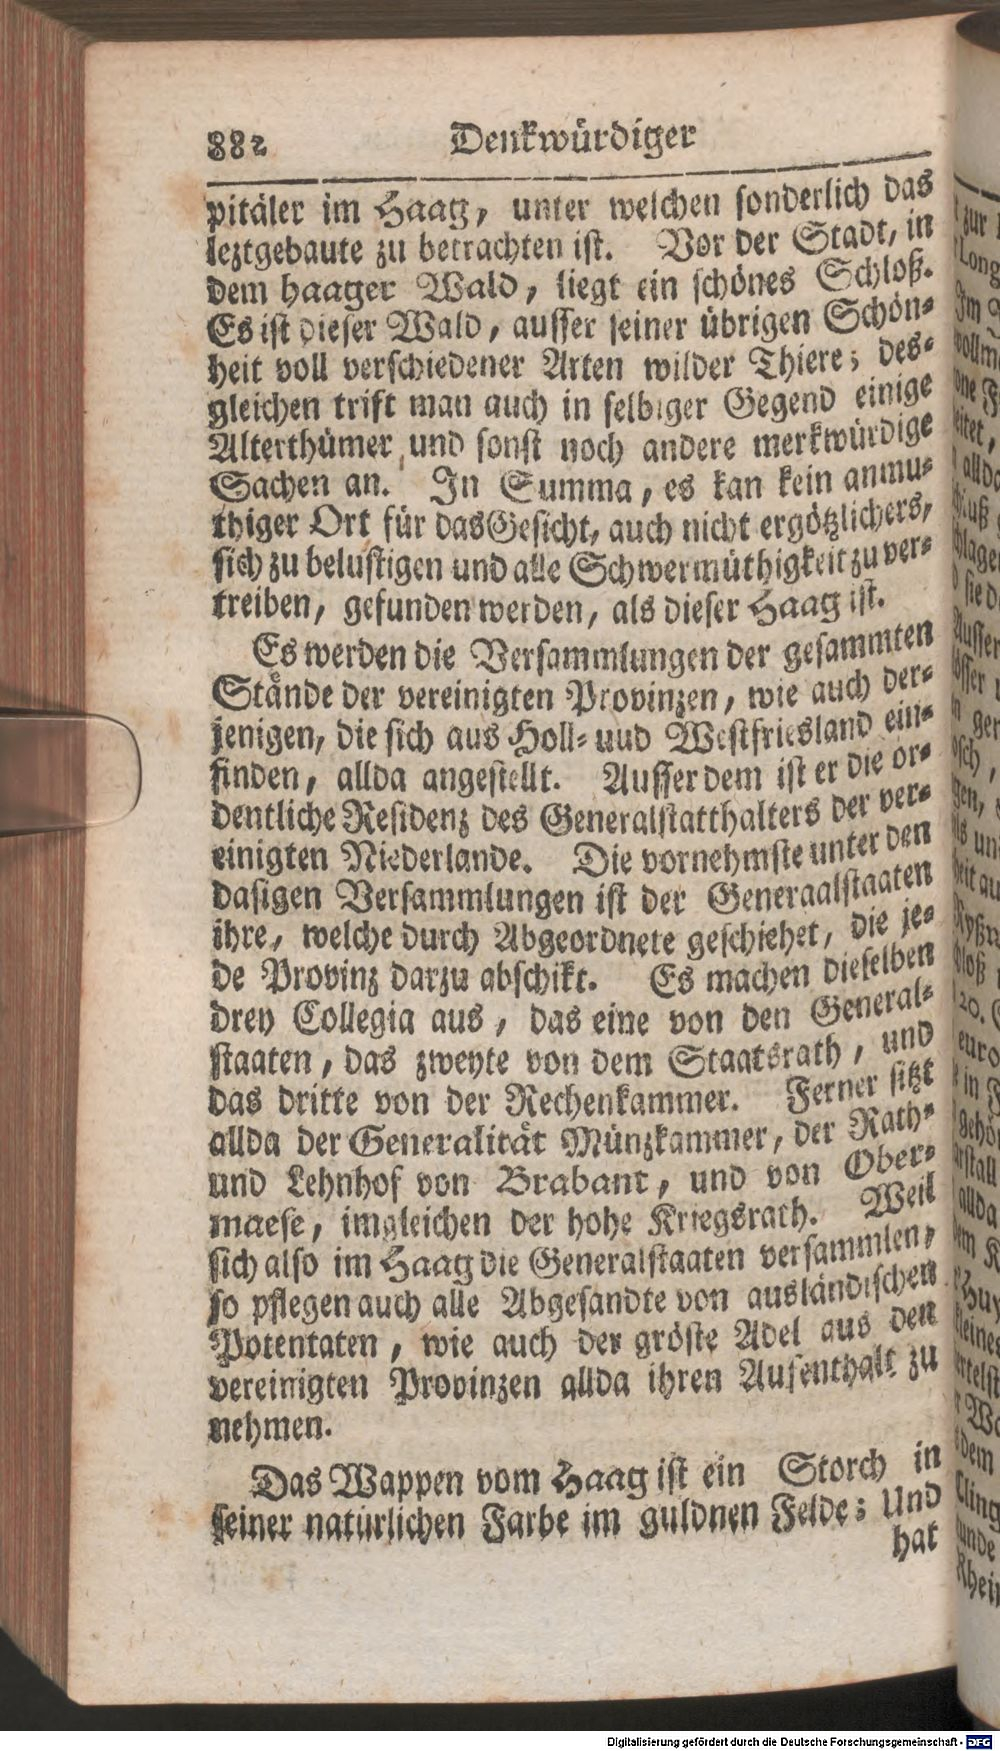 882 Denkwürdiger
pitäler im Haag, unter welchen sonderlich das
leztgebaute zu betrachten ist. Vor der Stadt, in
dem haager Wald, liegt ein schönes Schloß.
Es ist dieser Wald, ausser seiner übrigen Schön-
heit voll verschiedener Arten wilder Thiere; des-
gleichen trift man auch in selbiger Gegend einige
Alterthümer und sonst noch andere merkwürdige
Sachen an. In Summa, es kan kein anmu-
thiger Ort für das Gesicht, auch nicht ergötzlichers,
sich zu belustigen und alle Schwermüthigkeit zu ver-
treiben, gefunden werden, als dieser Haag ist.
Es werden die Versammlungen der gesammten
Stände der vereinigten Provinzen, wie auch der-
jenigen, die sich aus Holl- uud Westfriesland ein-
finden, allda angestellt. Ausser dem ist er die or-
dentliche Residenz des Generalstatthalters der ver-
einigten Niederlande. Die vornehmste unter den
dasigen Versammlungen ist der Generaalstaaten
ihre, welche durch Abgeordnete geschiehet, die je-
de Provinz darzu abschikt. Es machen dieselben
drey Collegia aus, das eine von den General-
staaten, das zweyte von dem Staatsrath, und
das dritte von der Rechenkammer. Ferner sitzt
allda der Generalität Münzkammer, der Rath-
und Lehnhof von Brabant, und von Ober-
maese, imgleichen der hohe Kriegsrath. Weil
sich also im Haag die Generalstaaten versammlen,
so pflegen auch alle Abgesandte von ausländischen
Potentaten, wie auch der gröste Adel aus den
vereinigten Provinzen allda ihren Aufenthalt zu
nehmen.
Das Wappen vom Haag ist ein Storch in
seiner natürlichen Farbe im guldnen Felde; Und
hat
Digitalisierung gefördert durch die Deutsche Forschungsgemeinschaft - DFG